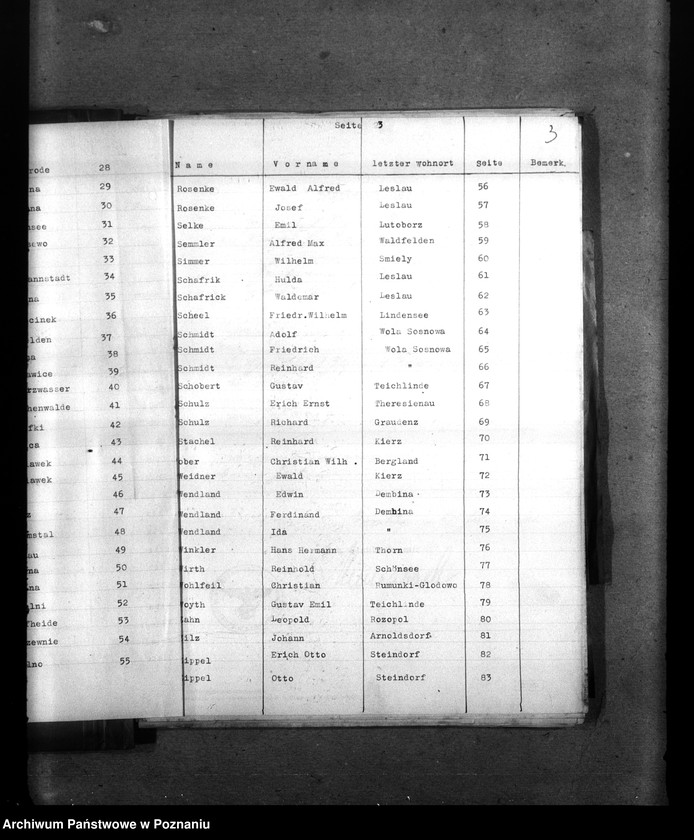 Seite 3
3
Name Vorname letzter Wohnort Seite Bemerk.
rode 28
na 29
na 30
see 31
awo 32
33
annstadt 34
na 35
cinek 36
lden 37
a 38
wice 39
rzwasser 40
henwalde 41
fki 42
ca 43
awek 44
awek 45
46
z 47
mstal 48
au 49
na 50
na 51
lni 52
fheide 53
zewnie 54
lno 55
Rosenke Ewald Alfred Leslau 56
Rosenke Josef Leslau 57
Selke Emil Lutoborz 58
Semmler Alfred Max Waldfelden 59
Simmer Wilhelm Smiely 60
Schafrik Hulda Leslau 61
Schafrick Waldemar Leslau 62
Scheel Friedr.Wilhelm Lindensee 63
Schmidt Adolf Wola Sosnowa 64
Schmidt Friedrich Wola Sosnowa 65
Schmidt Reinhard " 66
Schobert Gustav Teichlinde 67
Schulz Erich Ernst Theresienau 68
Schulz Richard Graudenz 69
Stachel Reinhard Kierz 70
ober Christian Wilh . Bergland 71
Weidner Ewald Kierz 72
Wendland Edwin Dembina 73
Wendland Ferdinand Dembina 74
Wendland Ida " 75
Winkler Hans Hermann Thorn 76
Wirth Reinhold Schönsee 77
Wohlfeil Christian Rumunki-Glodowo 78
Woyth Gustav Emil Teichlinde 79
ahn Leopold Rozopol 80
ilz Johann Arnoldsdorf 81
ippel Erich Otto Steindorf 82
ippel Otto Steindorf 83
Archiwum Państwowe w Poznaniu